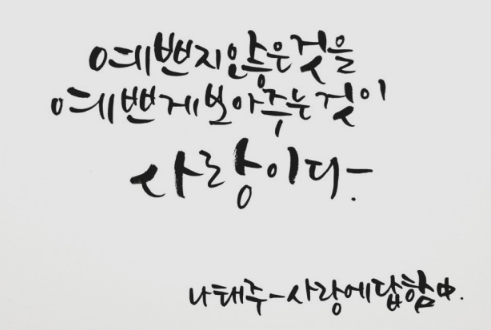 예쁘지 않은 것을
예쁘게 보아주는 것이
사랑이다.
나태주-사랑에 답함 中.